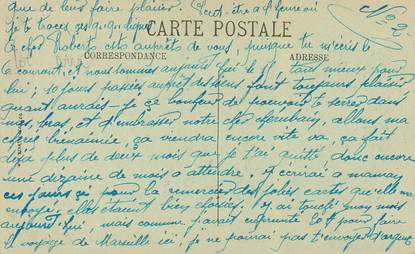 que de leur faire plaisir. Peut-être à l'heure où
je te trace ces q.q. lignes
CARTE POSTALE
Nº 2
ce cher Roberto est auprès de vous, puisque tu m'écris le
CORRESPONDANCE
ADRESSE
courant, et nous sommes aujourd'hui le tant mieux pour
lui; 10 jours passés auprès des siens font toujours plaisir
quand aurais-je ce bonheur de pouvoir te serrer dans
mes bras, et d'embrasser notre cher allons ma
chère bienaimée, ça viendra encore vite va, ça fait
déjà plus de deux mois que je t'ai quitté, donc encore
une dizaine de mois à attendre, j'écrirai à maman
ces jours çi pour la remercier des jolies cartes qu'elle m'a
envoyé, elles étaient bien choisies. J'ai touché mon mois
aujourd'hui, mais comme j'avais emprunté 20 f pour faire
le voyage de Marseille ici, je ne pourrai pas t'envoyer d'argent